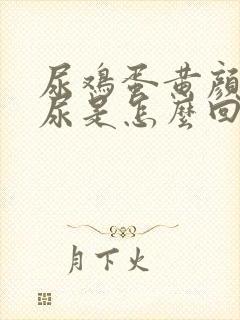 尿鸡蛋黄颜
尿是怎麼回
月下火